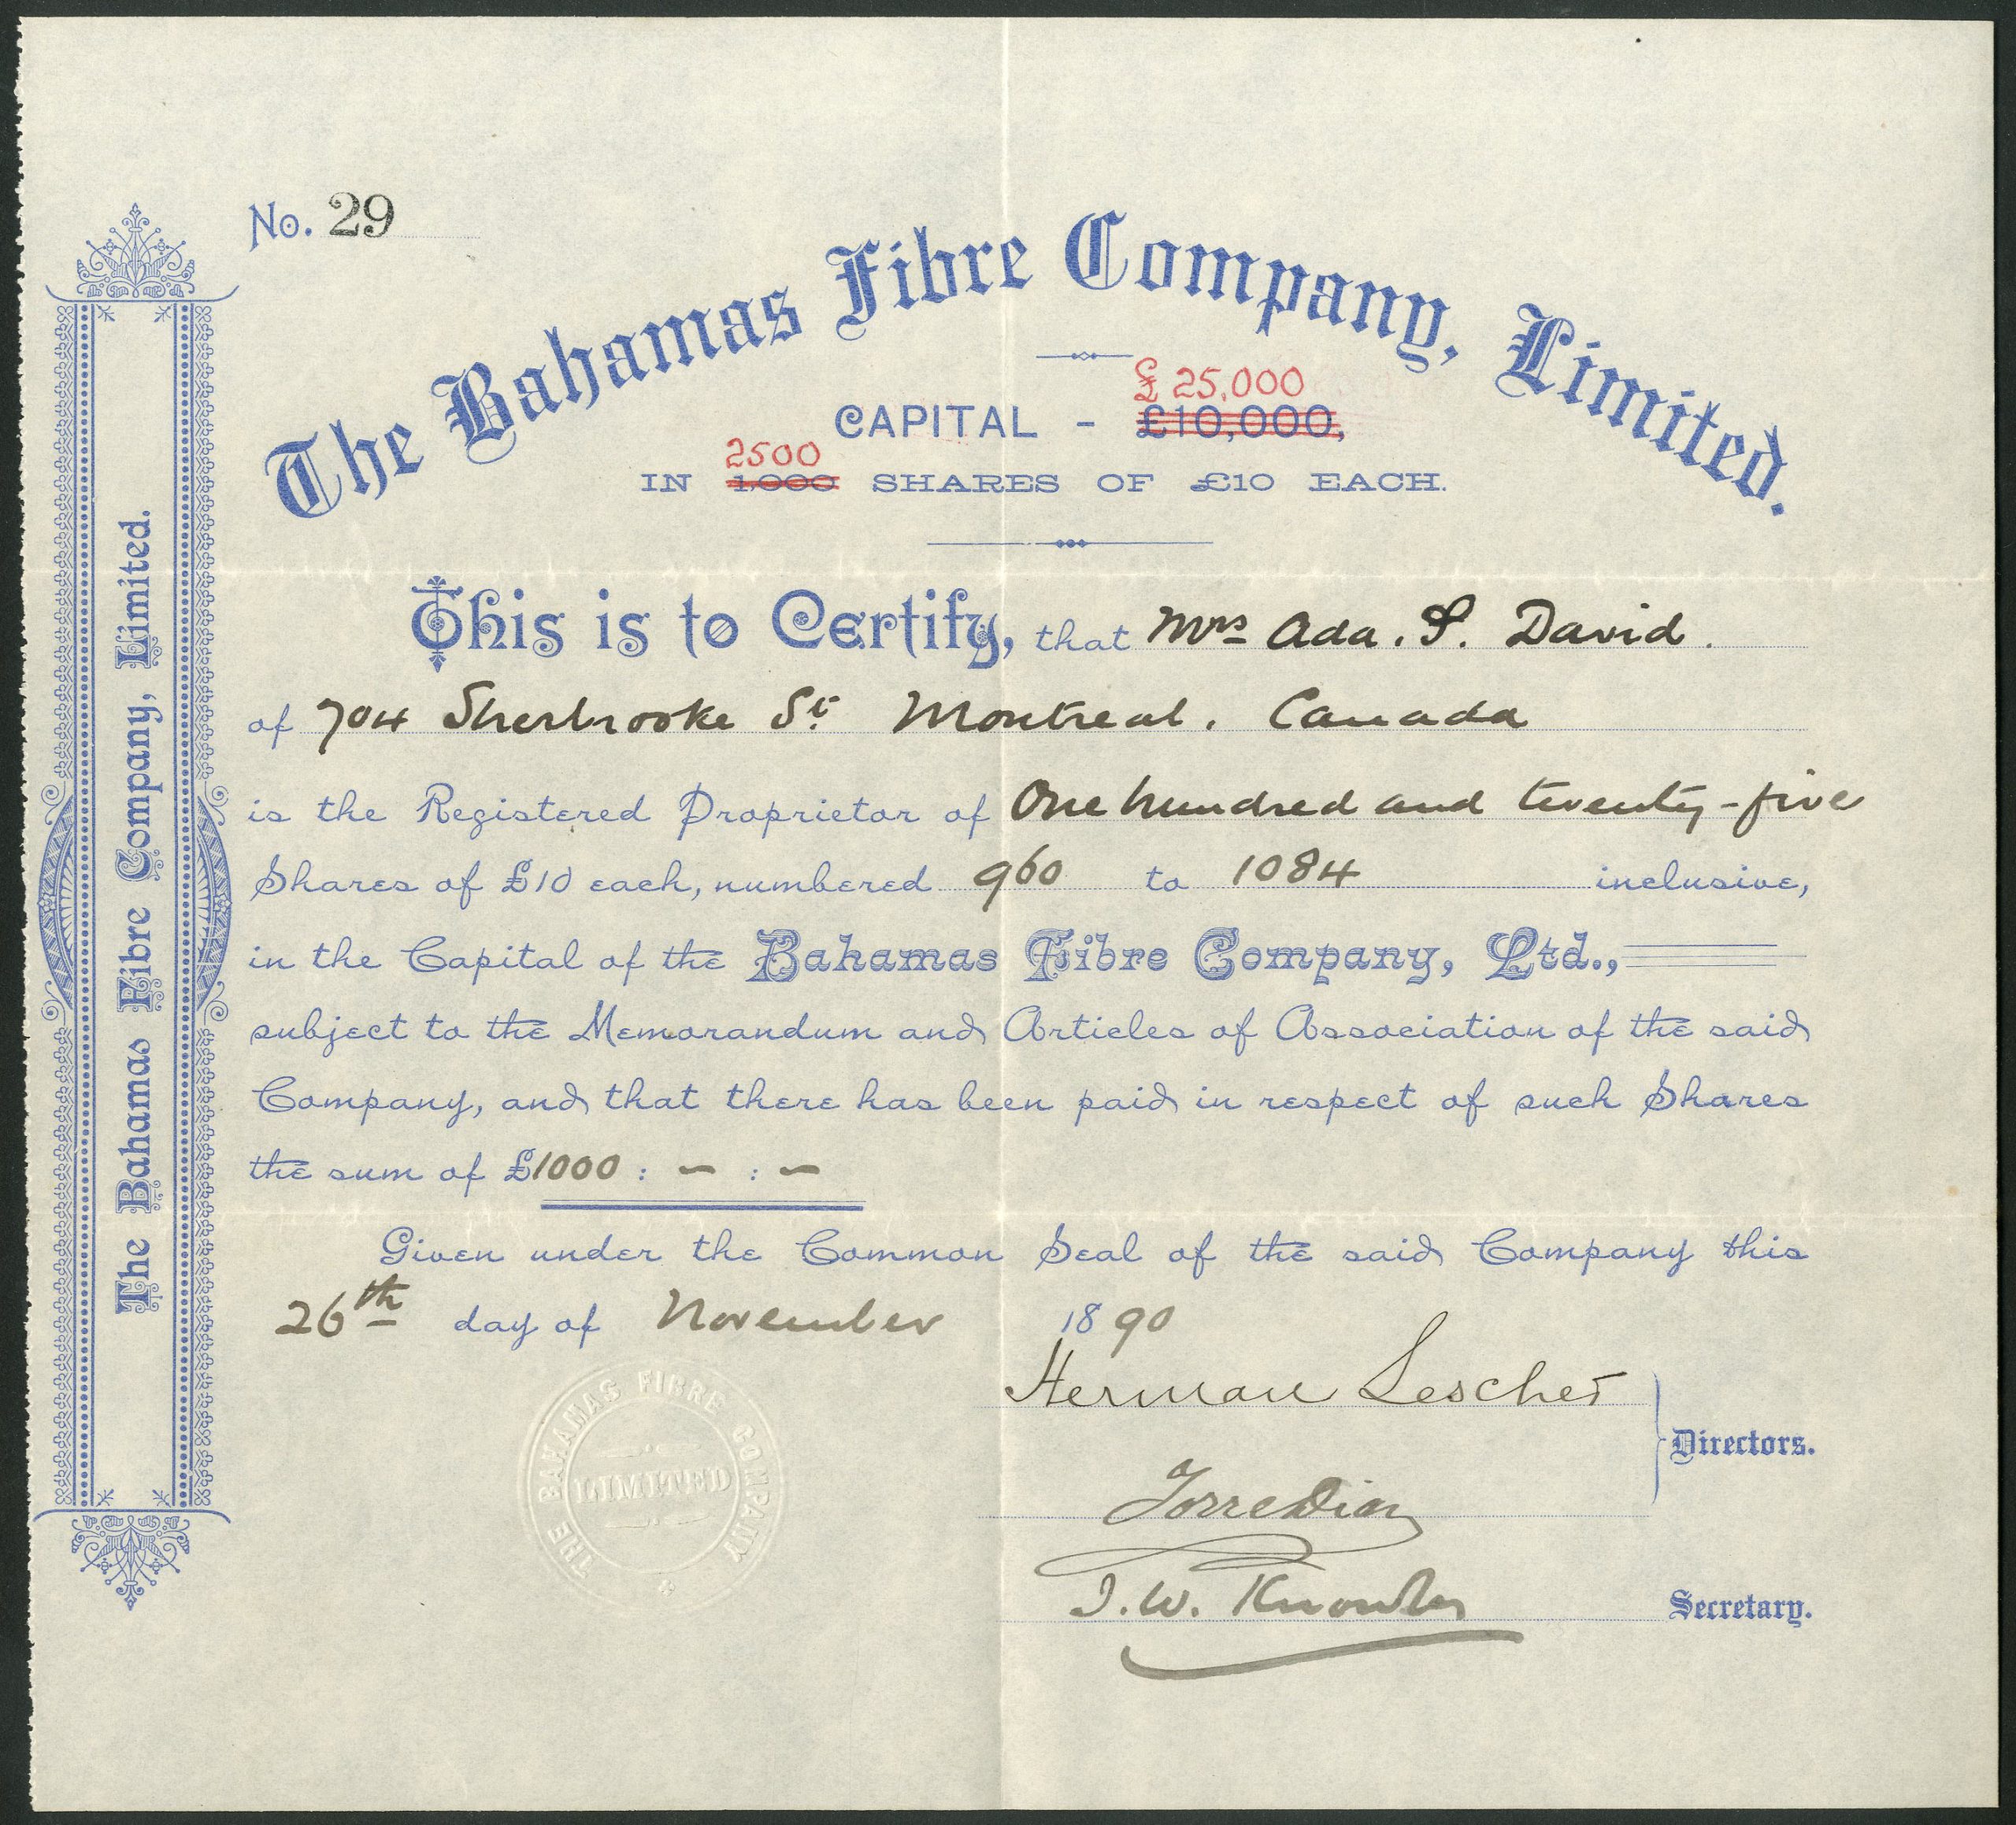 No. 29
The Bahamas Fibre Company, Limited.
£25,000
CAPITAL - £10,000,
2500
IN 1,000 SHARES OF £10 EACH.
This is to Certify, that Mrs Ada. S. David.
of 704 Sherbrooke St Montreal. Canada
is the Registered Proprietor of One hundred and twenty-five
Shares of £10 each, numbered 960 to 1084 inclusive,
in the Capital of the Bahamas Fibre Company, Ltd.,
subject to the Memorandum and Articles of Association of the said
Company, and that there has been paid in respect of such Shares
the sum of £1000 : - : -
Given under the Common Seal of the said Company this
26th day of November 1890
Herman Lescher
Directors.
Torre Diaz
J. W. Knowles
Secretary.
THE BAHAMAS FIBRE COMPANY
LIMITED
The Bahamas Fibre Company, Limited.